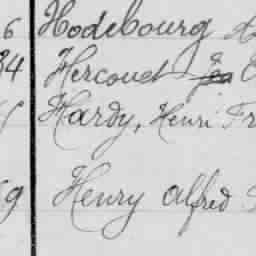 6 Hodebourg
34 Hercouet
Hardy, Henri Fr
9 Henry Alfred